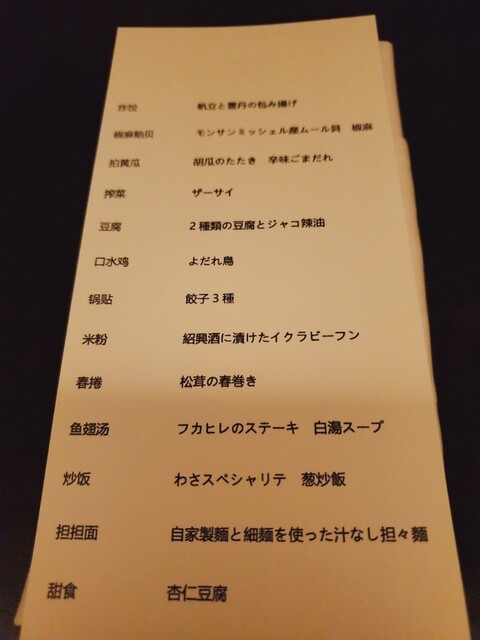 炸饺 帆立と雲丹の包み揚げ
椒麻贻贝 モンサンミッシェル産ムール貝 椒麻
拍黄瓜 胡瓜のたたき 辛味ごまだれ
搾菜 ザーサイ
豆腐 2種類の豆腐とジャコ辣油
口水鸡 よだれ鳥
锅贴 餃子3種
米粉 紹興酒に漬けたイクラビーフン
春捲 松茸の春巻き
鱼翅汤 フカヒレのステーキ 白湯スープ
炒饭 わさスペシャリテ 葱炒飯
担担面 自家製麺と細麺を使った汁なし担々麺
甜食 杏仁豆腐